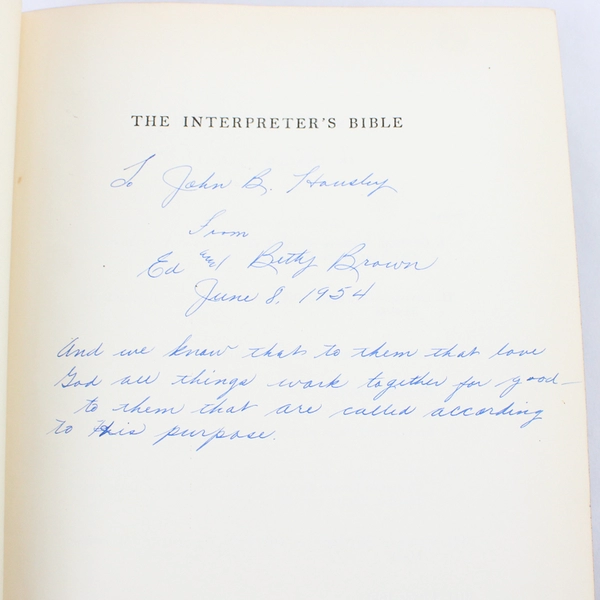 THE INTERPRETER'S BIBLE
To John B. Housley
From
Ed and Betty Brown
June 8, 1954
And we know that to them that love
God all things work together for good—
to them that are called according
to His purpose.